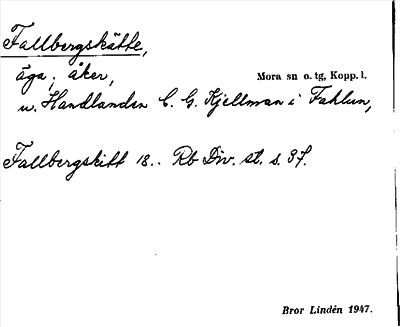 Fallbergskätte,
äga; åker, Mora sn o. tg, Kopp. l.
u. Handlanden C. G. Kjellman i Fahlun,
Fallbergskitt 18.. Rb Div. st. s. 37.
Bror Lindén 1947.